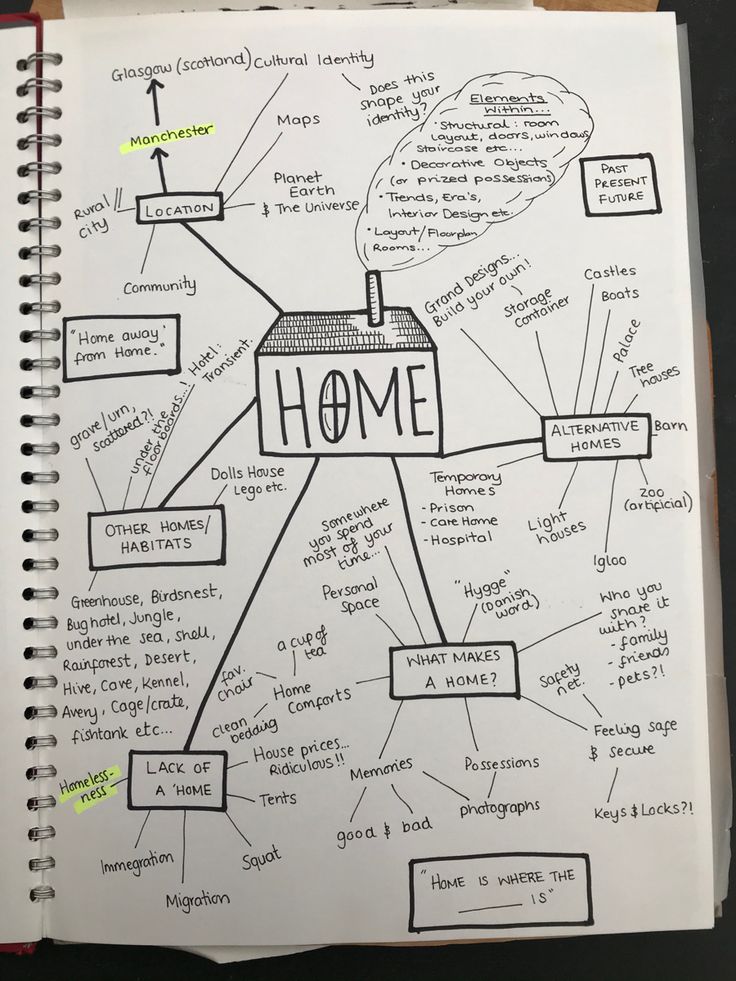 Glasgow (scotland)
Cultural Identity
Does this
shape your
identity?
Manchester
Maps
Planet
Earth
& The Universe
Rural //
city
LOCATION
Community
Elements
Within...
• Structural: room
Layout, doors, windows
Staircase etc...
• Decorative Objects
(or prized possessions)
• Trends, Era's,
Interior Design etc.
• Layout/Floorplan
Rooms...
PAST
PRESENT
FUTURE
"Home away
from Home."
HOME
Grand Designs...
Build your own!
Storage
Container
Castles
Boats
Palace
Tree
houses
Barn
ALTERNATIVE
HOMES
Temporary
Homes
- Prison
- Care Home
- Hospital
Light
houses
Igloo
Zoo
(artificial)
grave/urn,
scattered?!
under the
floorboards...!
Hotel:
Transient.
Dolls House
Lego etc.
OTHER HOMES/
HABITATS
Greenhouse, Birdsnest,
Bug hotel, Jungle,
under the sea, Shell,
Rainforest, Desert,
Hive, Cave, Kennel,
Avery, Cage/crate,
fishtank etc...
Somewhere
you spend
most of your
time...
Personal
Space
"Hygge"
(Danish
word)
Who you
share it
with?
- family
- friends
- pets?!
WHAT MAKES
A HOME?
a cup of
tea
fav.
chair
Home
Comforts
clean
bedding
Safety
net.
Feeling safe
& secure
Keys & Locks?!
Memories
good & bad
Possessions
photographs
LACK OF
A 'HOME
House prices...
Ridiculous!!
Tents
Squat
Homeless-
ness
Immegration
Migration
"HOME IS WHERE THE
______ IS"